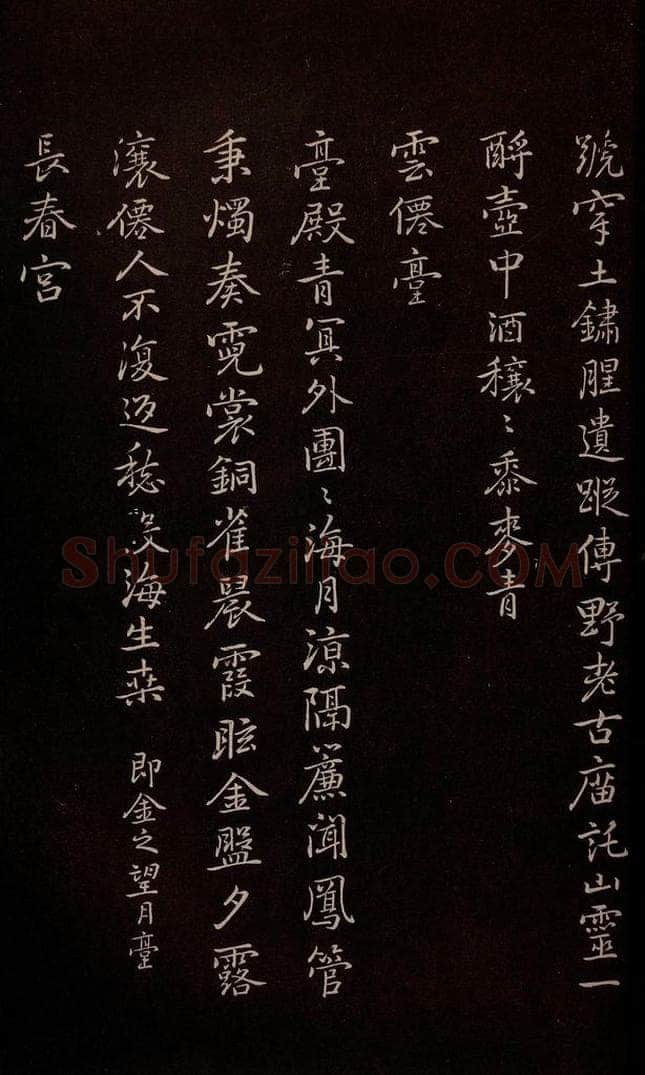 號穿土鏽腥遺蹤傳野老古廟託山靈一
酹壺中酒穰〻黍麥青
雲僊臺
臺殿青冥外團〻海月涼隔簾聞鳳管
秉燭奏霓裳銅雀晨霞眩金盤夕露
瀼僊人不復返愁海生桒 即金之望月臺
長春宮
Shufaziliao.COM